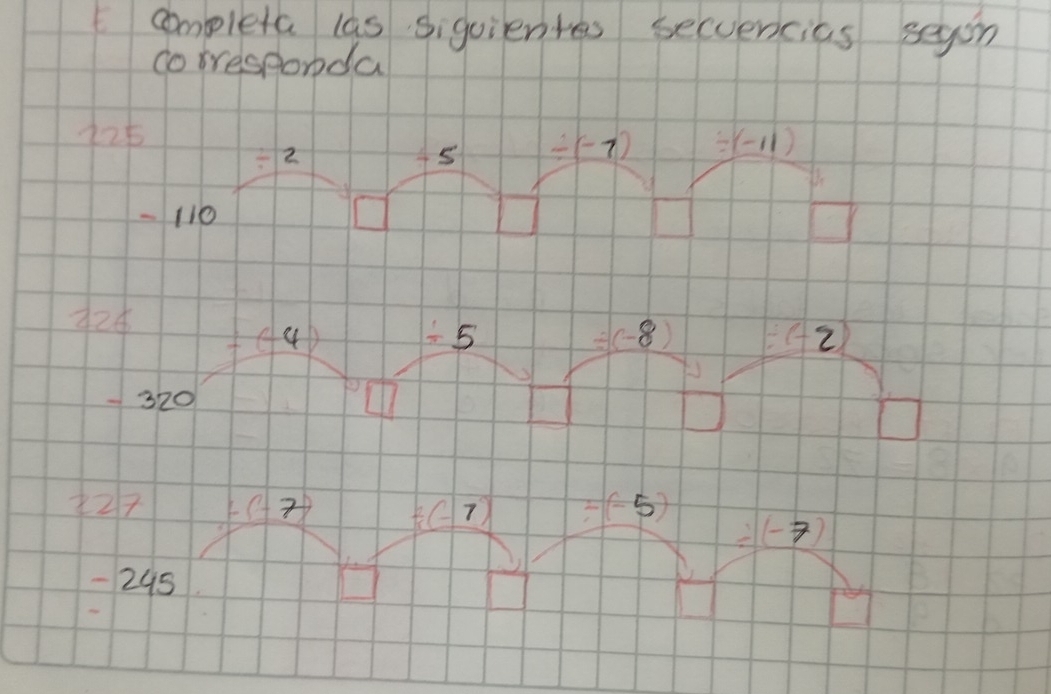 E completa las siguientes secuencias según
corresponda
225
÷ 2 ÷ 5 ÷(-1) ÷(-11)
- 110
226
÷ (-4) ÷ 5 ÷(-8) ÷(-2)
- 320
227
÷(-7) ÷(-1) ÷(-5) ÷(-7)
- 245